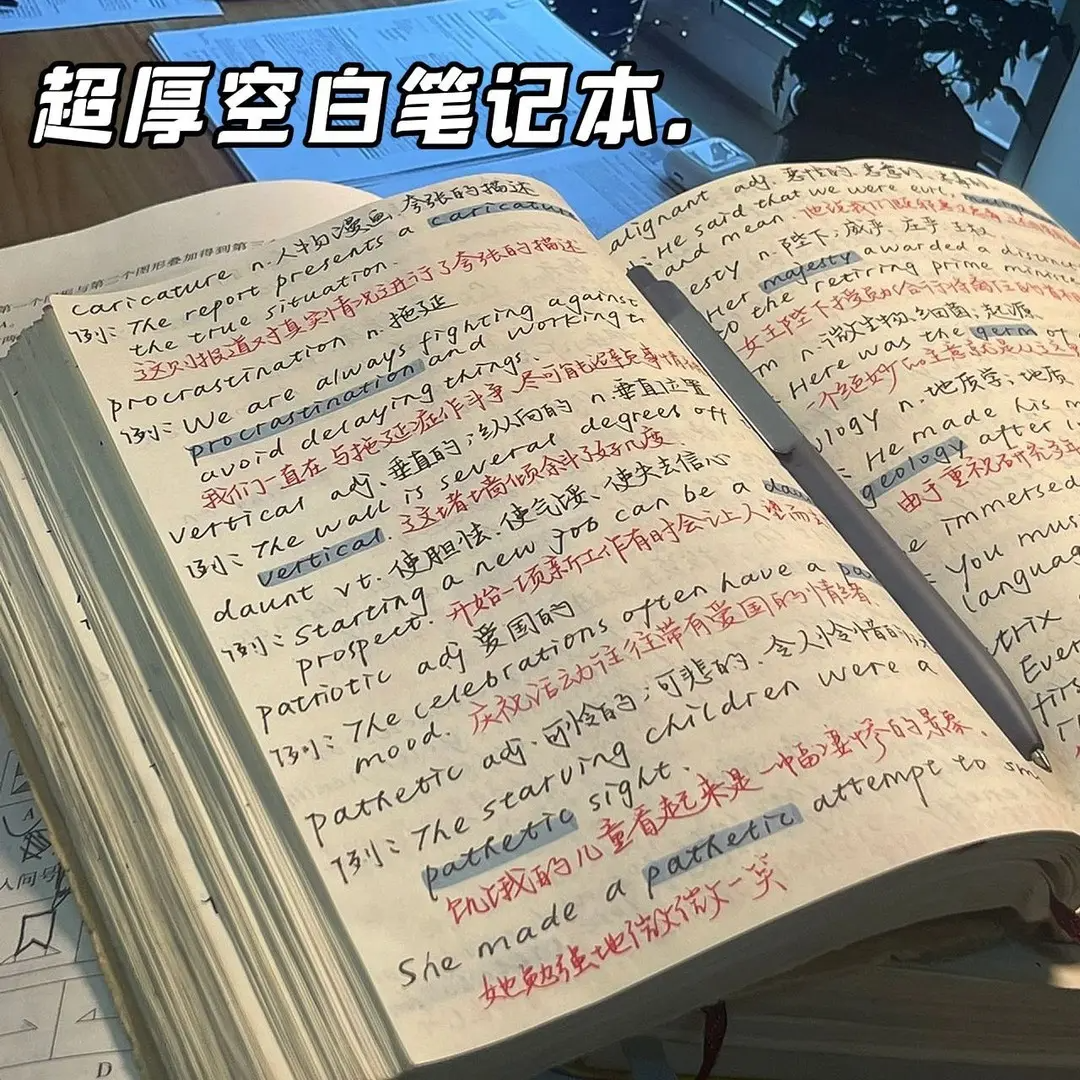 超厚空白笔记本.
caricature n.人物漫画,夸张的描述
例:The report presents a caricature
the true situation.
这则报道对真实情况进行了夸张的描述
procrastination n.拖延
例:We are always fighting against
procrastination and working to
avoid delaying things.
我们一直在与拖延症作斗争 尽可能避免事情
vertical adj.垂直的;纵向的 n.垂直位置
例:The wall is several degrees off
vertical. 这堵墙倾斜了好几度.
daunt vt.使胆怯.使气馁、使失去信心
例:Starting a new job can be a
prospect. 开始一项新工作有时会让人望而
patriotic adj 爱国的
例:The celebrations often have a
mood. 庆祝活动往往带有爱国的情绪.
pathetic adj.可怜的;可悲的.令人怜惜的
例:The starving children were a
pathetic sight.
饥饿的儿童看起来是一幅凄惨的景象.
She made a pathetic attempt to
她勉强地微微一笑
adj.恶性的.恶意的.
: He said that we were evil,
and mean
n.陛下;威严.庄严.王权
Her majesty awarded a distinct
to the retiring prime
n.微生物.细菌;起源
Here was the germ of
n.地质学;地质
He made his
geology after
由于重视研究
immersed
You mus
langua
Ever
firs
第一个图形与第二个图形叠加得到第三
A
D